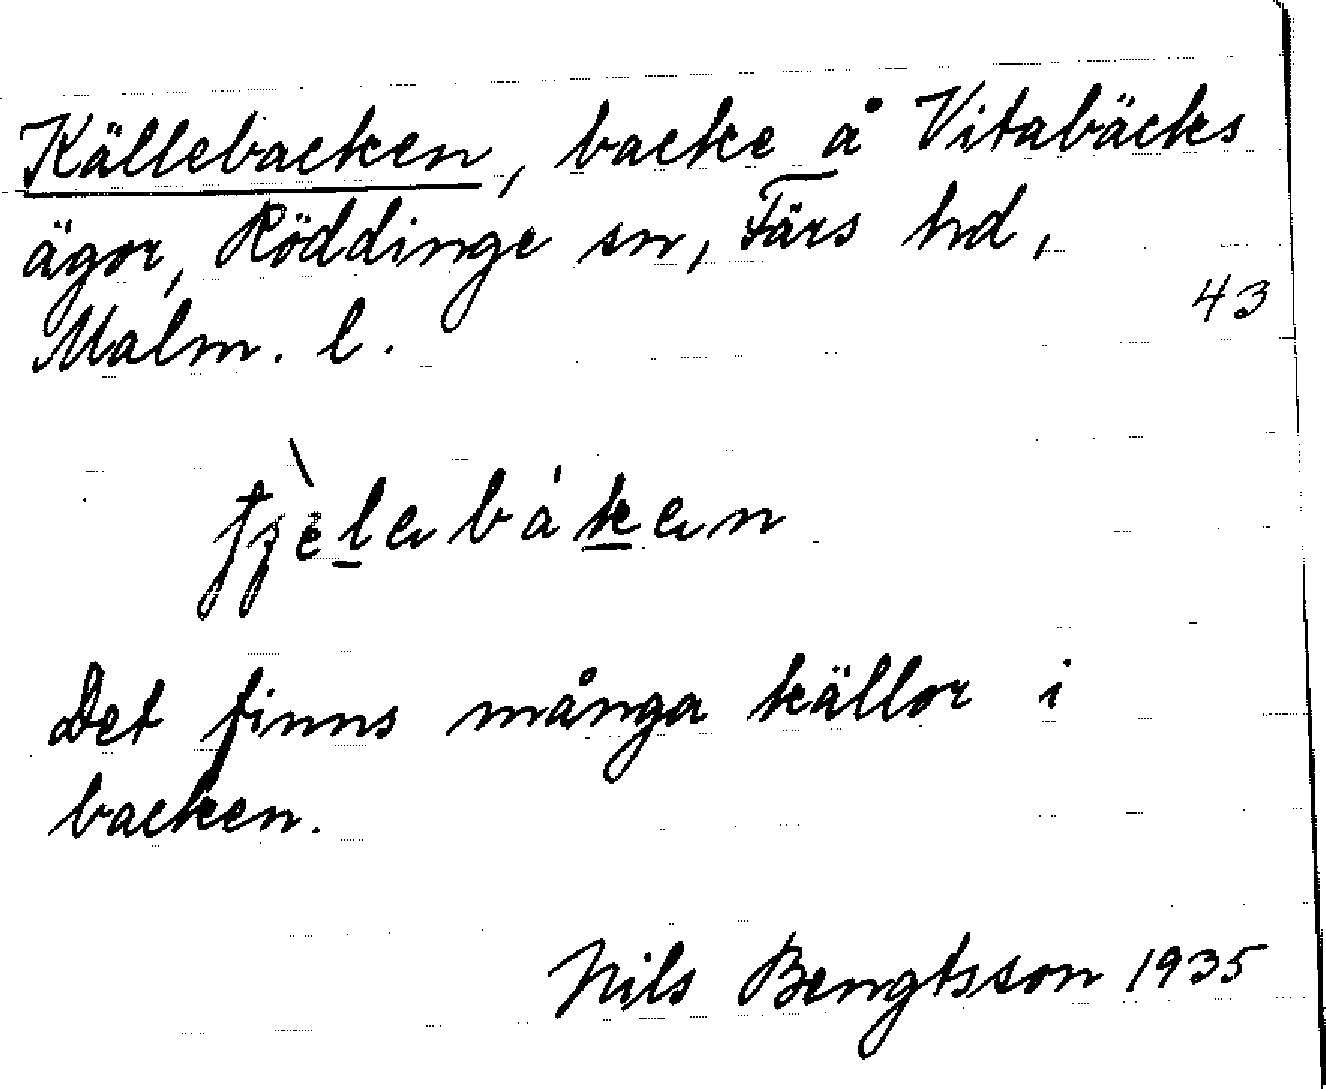 Källebacken, backe å Vitabäcks
ägor, Röddinge sn, Färs hd,
43
Malm. l.
Det finns många källor i
backen.
Nils Bengtsson 1935